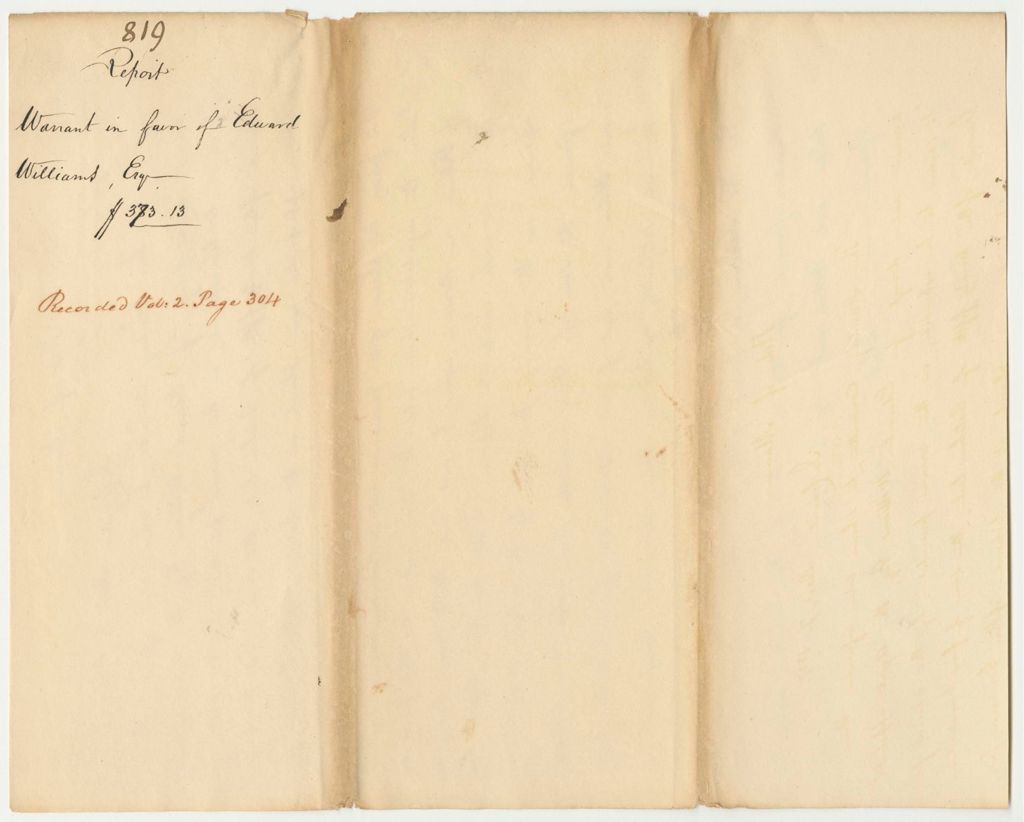 819
Report
Warrant in favor of Edward
Williams, Esqr
$373.13
Recorded Vol: 2. Page 304